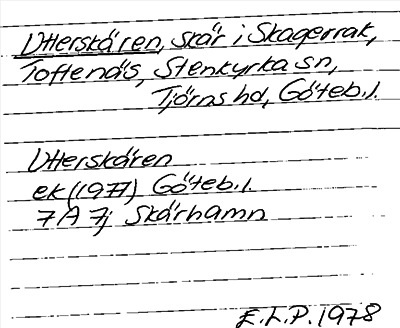 Utterskären, skär i Skagerrak,
Toftenäs, Stenkyrka sn,
Tjörns hd, Göteb. l.
Utterskären
ek (1977) Göteb. l.
7 A 7j Skärhamn
E.L.P. 1978